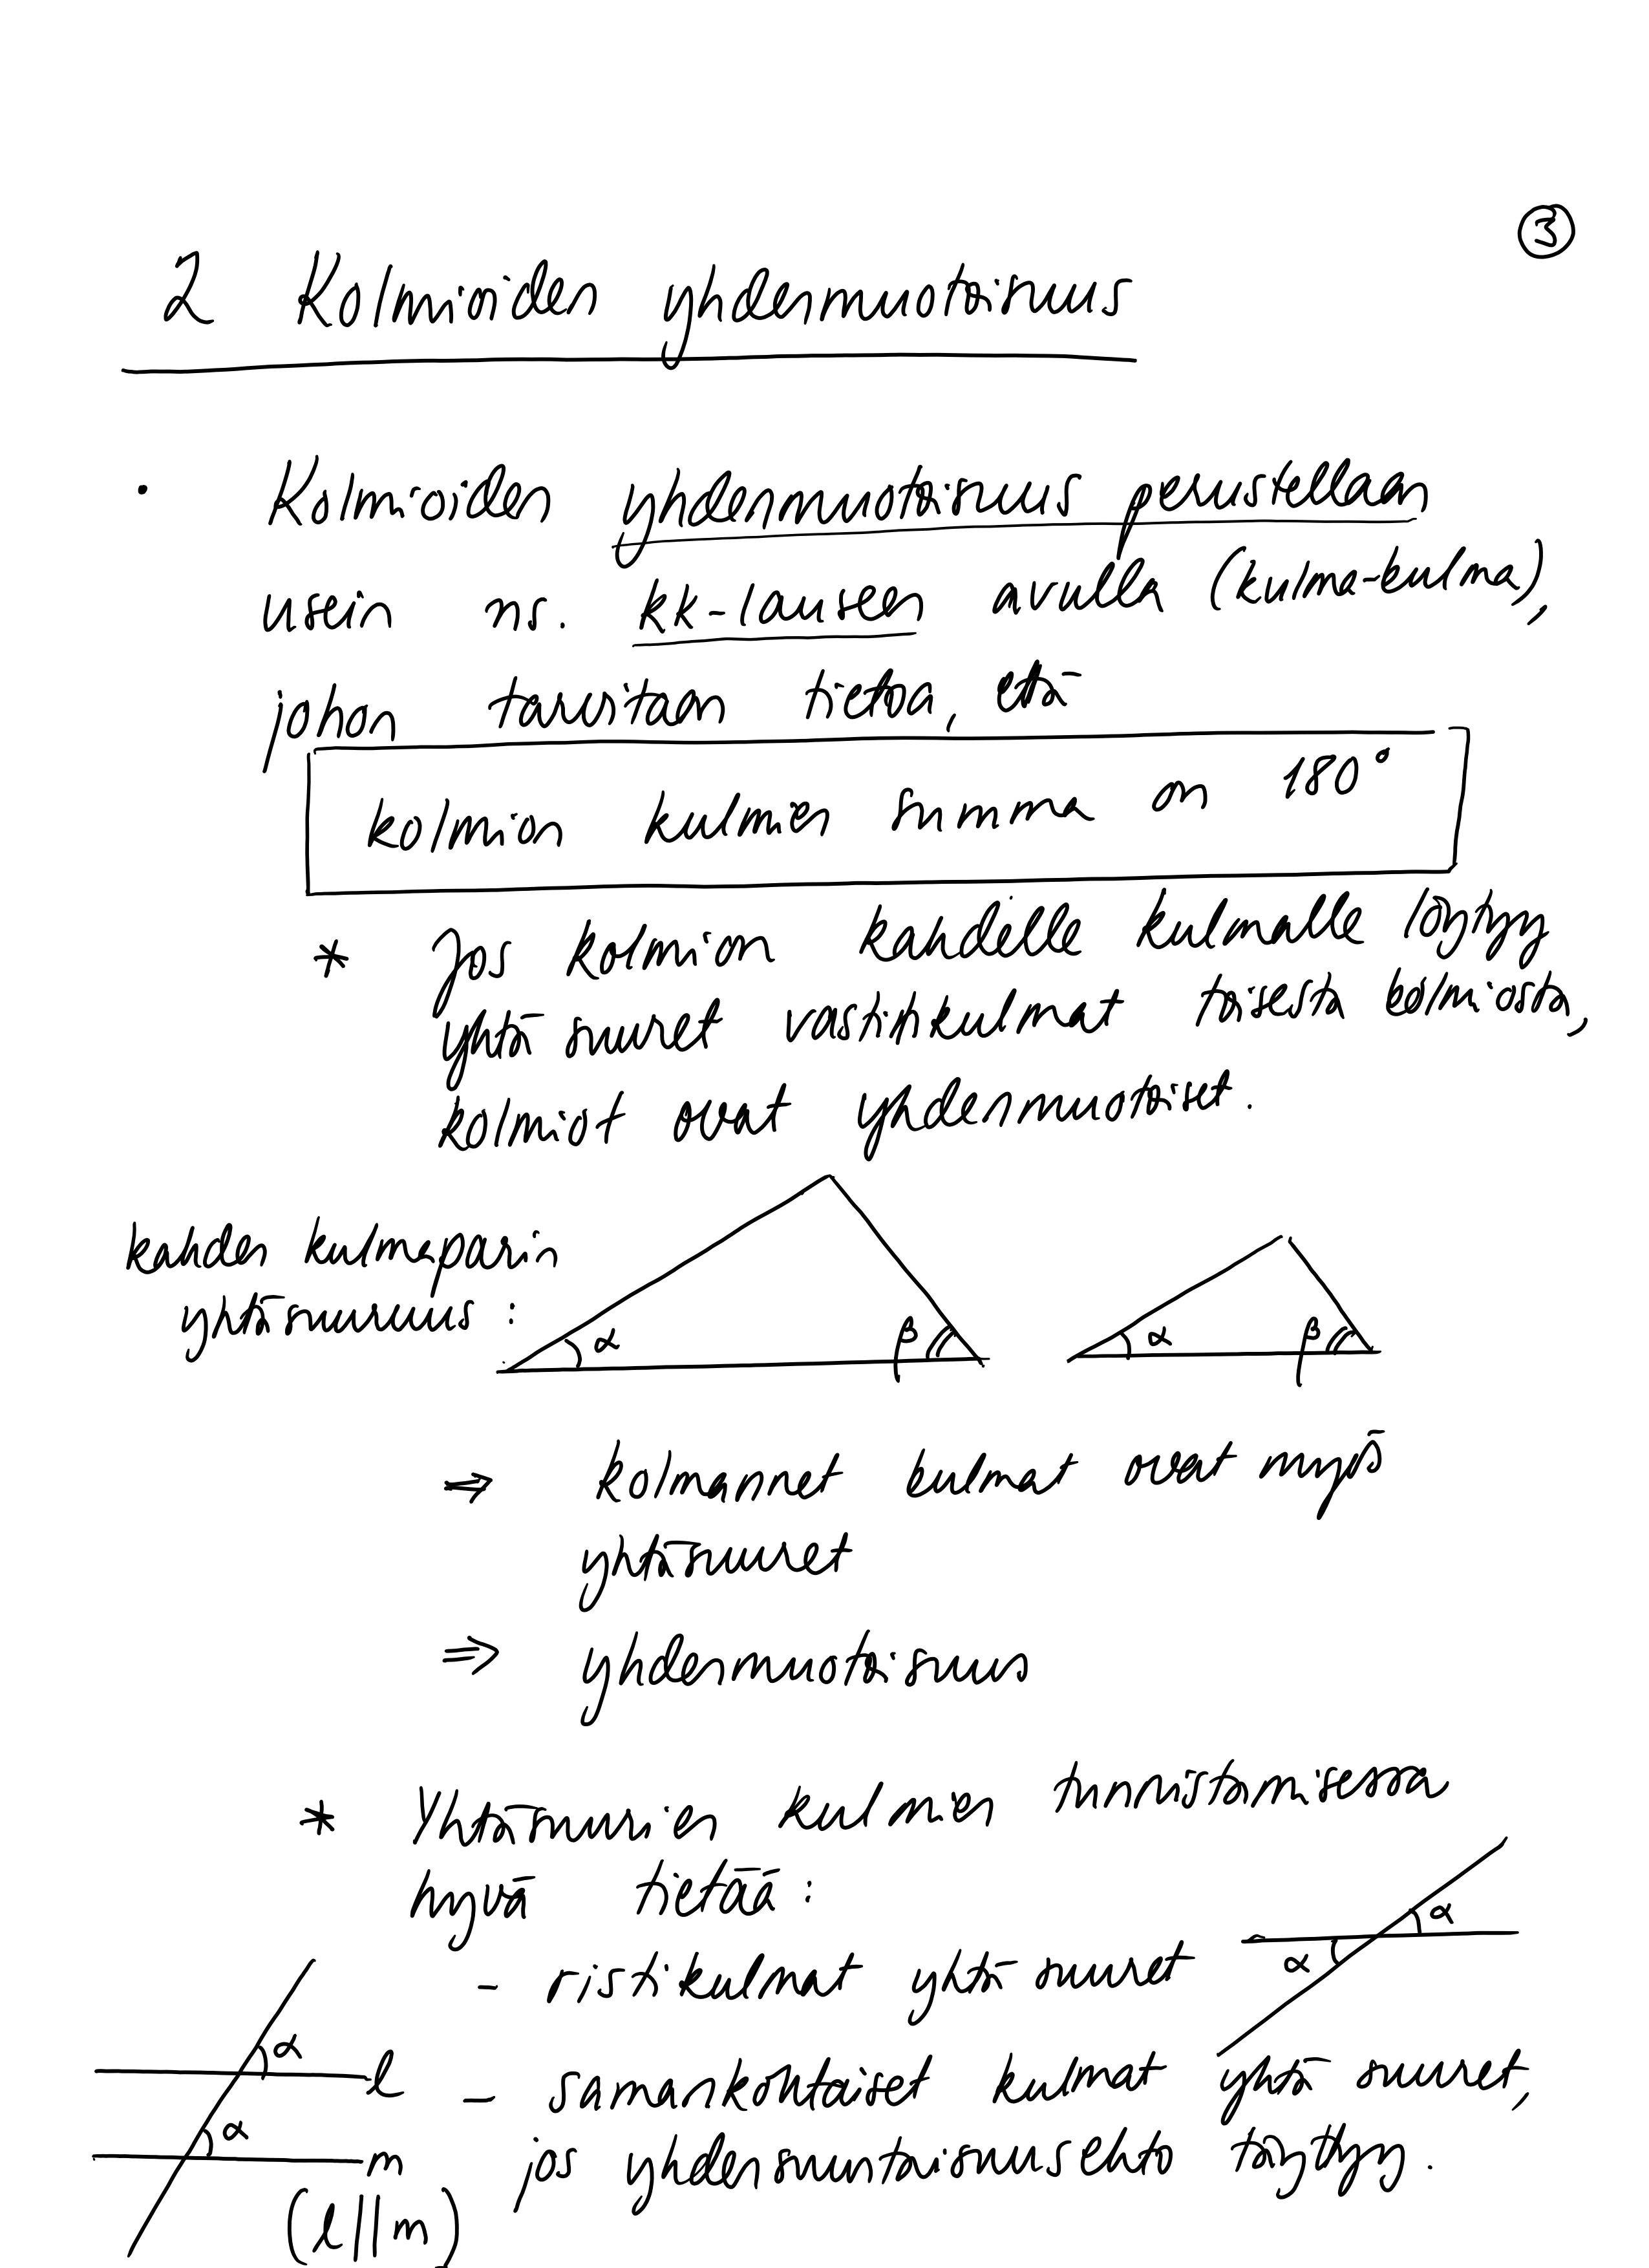 ③
2 Kolmioiden yhdenmuotoisuus
· Kolmioiden yhdenmuotoisuus perustellaan
usein ns. kk-lauseen avulla (kulma-kulma),
johon tarvitaan tietoa, että
kolmion kulmien summa on 180°
* Jos kolmion kahdelle kulmalle löytyy
yhtä suuret vastinkulmat toisesta kolmiosta,
kolmiot ovat yhdenmuotoiset.
kahden kulmaparin
yhtäsuuruus :
α β α β
⇒ kolmannet kulmat ovat myös
yhtäsuuret
⇒ yhdenmuotoisuus
* Yhtäsuurien kulmien tunnistamisessa
hyvä tietää :
α
α
- ristikulmat yhtä suuret
α
l
- samankohtaiset kulmat yhtä suuret,
α
m
jos yhdensuuntaisuusehto täyttyy.
(l||m)